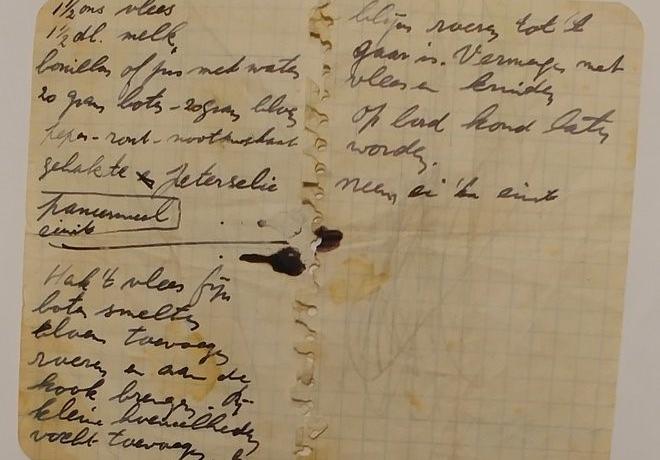 1½ ons vlees
1½ dl. melk
bouillon of jus met water
20 gram boter - 20 gram bloem
peper - zout - nootmuskaat
gehakte peterselie
paneermeel
eiwit
Hak 't vlees fijn
boter smelten
bloem toevoegen
roeren en aan de
kook brengen. Bij
kleine hoeveelheden
vocht toevoegen
blijven roeren tot 't
gaar is. Vermengen met
vlees en kruiden
op bord koud laten
worden.
Neem ei en eiwit